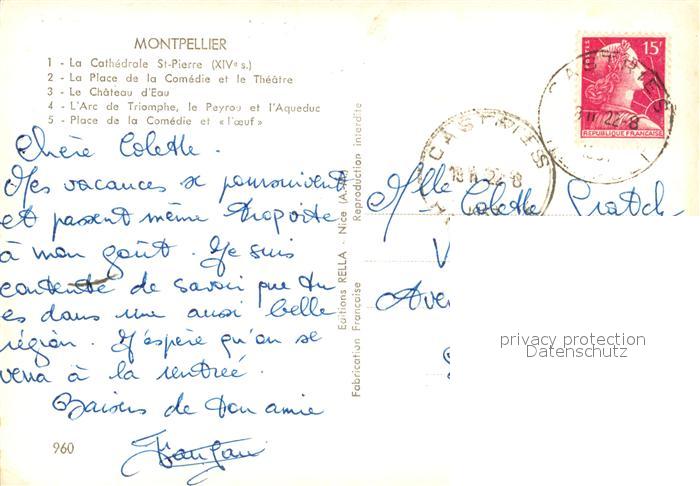 MONTPELLIER
1 - La Cathédrale St-Pierre (XIVe s.)
2 - La Place de la Comédie et le Théâtre
3 - Le Château d'Eau
4 - L'Arc de Triomphe, le Peyrou et l'Aqueduc
5 - Place de la Comédie et « l'œuf »
Chère Colette.
Mes vacances se poursuivent
et passent même trop vite
à mon goût. Je suis
contente de savoir que tu
es dans une aussi belle
région. J'espère qu'on se
verra à la rentrée.
Baisers de ton amie
960
Editions RELLA - Nice
Fabrication Française Reproduction interdite
POSTES
15f
REPUBLIQUE FRANÇAISE
CASTRIES
22-8
CASTRIES
22-8
Mlle Colette
V
Ave
privacy protection
Datenschutz